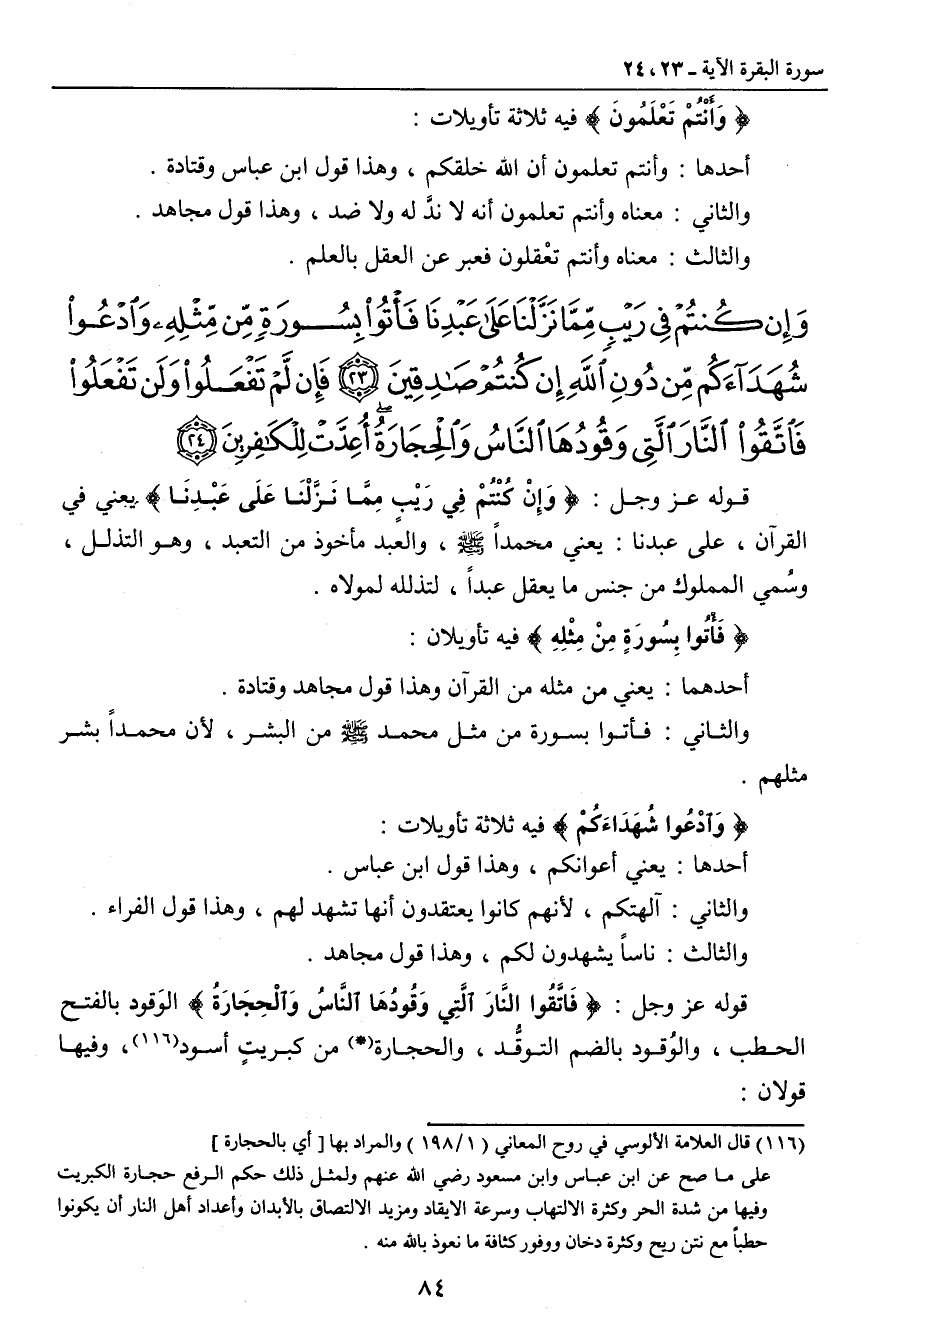 سورة البقرة الآية ـ ٢٣، ٢٤
﴿ وَأَنْتُمْ تَعْلَمُونَ ﴾ فيه ثلاثة تأويلات :
أحدها : وأنتم تعلمون أن الله خلقكم ، وهذا قول ابن عباس وقتادة .
والثاني : معناه وأنتم تعلمون أنه لا ندَّ له ولا ضد ، وهذا قول مجاهد .
والثالث : معناه وأنتم تعْقلون فعبر عن العقل بالعلم .
وَإِن كُنتُمْ فِى رَيْبٍ مِّمَّا نَزَّلْنَا عَلَىٰ عَبْدِنَا فَأْتُوا۟ بِسُورَةٍ مِّن مِّثْلِهِۦ وَٱدْعُوا۟
شُهَدَآءَكُم مِّن دُونِ ٱللَّهِ إِن كُنتُمْ صَـٰدِقِينَ ﴿٢٣﴾ فَإِن لَّمْ تَفْعَلُوا۟ وَلَن تَفْعَلُوا۟
فَٱتَّقُوا۟ ٱلنَّارَ ٱلَّتِى وَقُودُهَا ٱلنَّاسُ وَٱلْحِجَارَةُ ۖ أُعِدَّتْ لِلْكَـٰفِرِينَ ﴿٢٤﴾
قوله عز وجل : ﴿ وَإِنْ كُنْتُمْ فِي رَيْبٍ مِمَّا نَزَّلْنَا عَلَى عَبْدِنَا ﴾ يعني في
القرآن ، على عبدنا : يعني محمداً ﷺ ، والعبد مأخوذ من التعبد ، وهو التذلل ،
وسُمي المملوك من جنس ما يعقل عبداً ، لتذلله لمولاه .
﴿ فَأْتُوا بِسُورَةٍ مِنْ مِثْلِهِ ﴾ فيه تأويلان :
أحدهما : يعني من مثله من القرآن وهذا قول مجاهد وقتادة .
والثاني : فأتوا بسورة من مثل محمد ﷺ من البشر ، لأن محمداً بشر
مثلهم .
﴿ وَٱدْعُوا شُهَدَاءَكُمْ ﴾ فيه ثلاثة تأويلات :
أحدها : يعني أعوانكم ، وهذا قول ابن عباس .
والثاني : آلهتكم ، لأنهم كانوا يعتقدون أنها تشهد لهم ، وهذا قول الفراء .
والثالث : ناساً يشهدون لكم ، وهذا قول مجاهد .
قوله عز وجل : ﴿ فَاتَّقُوا النَّارَ الَّتِي وَقُودُهَا النَّاسُ وَالْحِجَارَةُ ﴾ الوَقود بالفتح
الحطب ، والوُقود بالضم التوقُّد ، والحجارة(*) من كبريتٍ أسود(١١٦)، وفيها
قولان :
(١١٦) قال العلامة الألوسي في روح المعاني ( ١/ ١٩٨ ) والمراد بها [ أي بالحجارة ]
على ما صح عن ابن عباس وابن مسعود رضي الله عنهم ولمثل ذلك حكم الرفع حجارة الكبريت
وفيها من شدة الحر وكثرة الالتهاب وسرعة الايقاد ومزيد الالتصاق بالأبدان وأعداد أهل النار أن يكونوا
حطباً مع نتن ريح وكثرة دخان ووفور كثافة ما نعوذ بالله منه .
٨٤